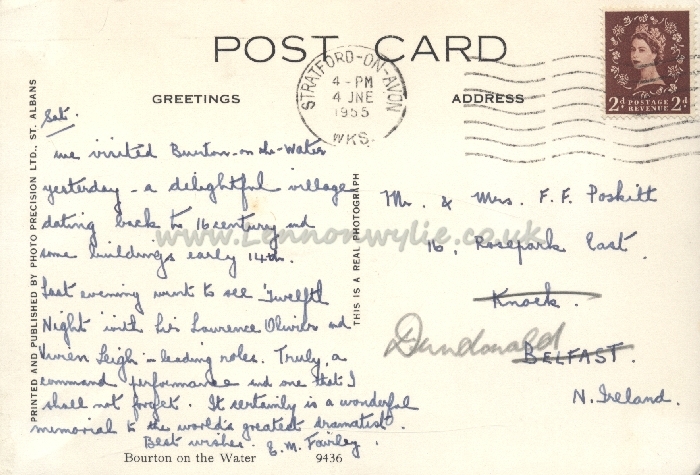 POST CARD
STRATFORD-ON-AVON
4 - PM
4 JNE
1955
WKS.
2d POSTAGE REVENUE 2d
GREETINGS
ADDRESS
PRINTED AND PUBLISHED BY PHOTO PRECISION LTD., ST. ALBANS
THIS IS A REAL PHOTOGRAPH
Sat.
We visited Bourton-on-the-Water
yesterday - a delightful village
dating back to 16 century and
some buildings early 14th.
Last evening went to see 'Twelfth
Night' with Sir Laurence Olivier and
Vivien Leigh - leading roles. Truly, a
command performance and one that I
shall not forget. It certainly is a wonderful
memorial to the world's greatest dramatist.
Best wishes. E. M. Fairley.
Mr. & Mrs. F. F. Poskitt
16, Rosepark East.
Knock.
Dundonald
BELFAST.
N. Ireland.
www.Lennonwylie.co.uk
Bourton on the Water 9436